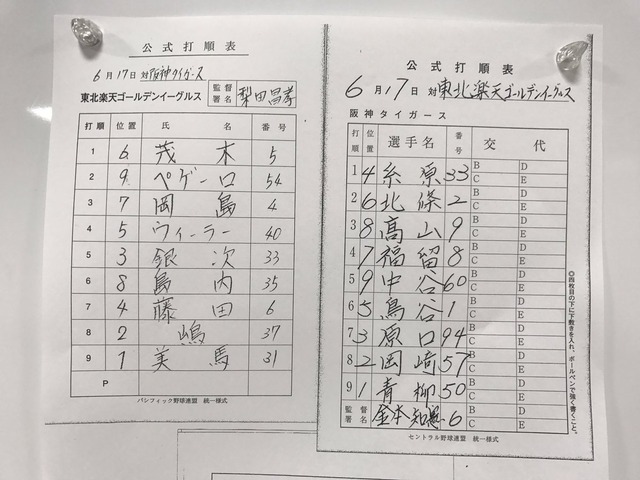 公式打順表
6月17日 対 阪神タイガース
東北楽天ゴールデンイーグルス 監督署名 梨田昌孝
打順 位置 氏名 番号
1 6 茂木 5
2 9 ペゲーロ 54
3 7 岡島 4
4 5 ウィーラー 40
5 3 銀次 33
6 8 島内 35
7 4 藤田 6
8 2 嶋 37
9 1 美馬 31
P
パシフィック野球連盟 統一様式
公式打順表
6月17日 対 東北楽天ゴールデンイーグルス
阪神タイガース
打順 位置 選手名 番号 交代
1 4 糸原 33 B D
C E
2 6 北條 2 B D
C E
3 8 髙山 9 B D
C E
4 7 福留 8 B D
C E
5 9 中谷 60 B D
C E
6 5 鳥谷 1 B D
C E
7 3 原口 94 B D
C E
8 2 岡崎 57 B D
C E
9 1 青柳 50 B D
C E
監督署名 金本知憲 6 B D
C E
セントラル野球連盟 統一様式
◎四枚目の下に下敷きを入れ、ボールペンで強く書くこと。